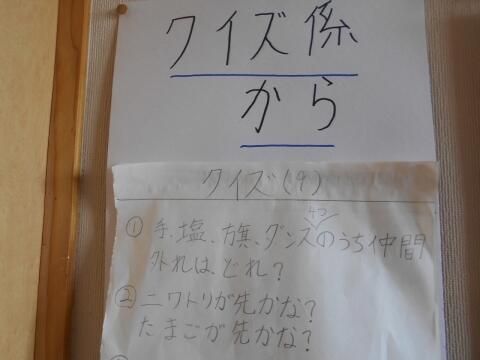 クイズ係
から
クイズ(9)
4つ
①手、塩、旗、ダンスのうち仲間
外れは、どれ?
②ニワトリが先かな?
たまごが先かな?